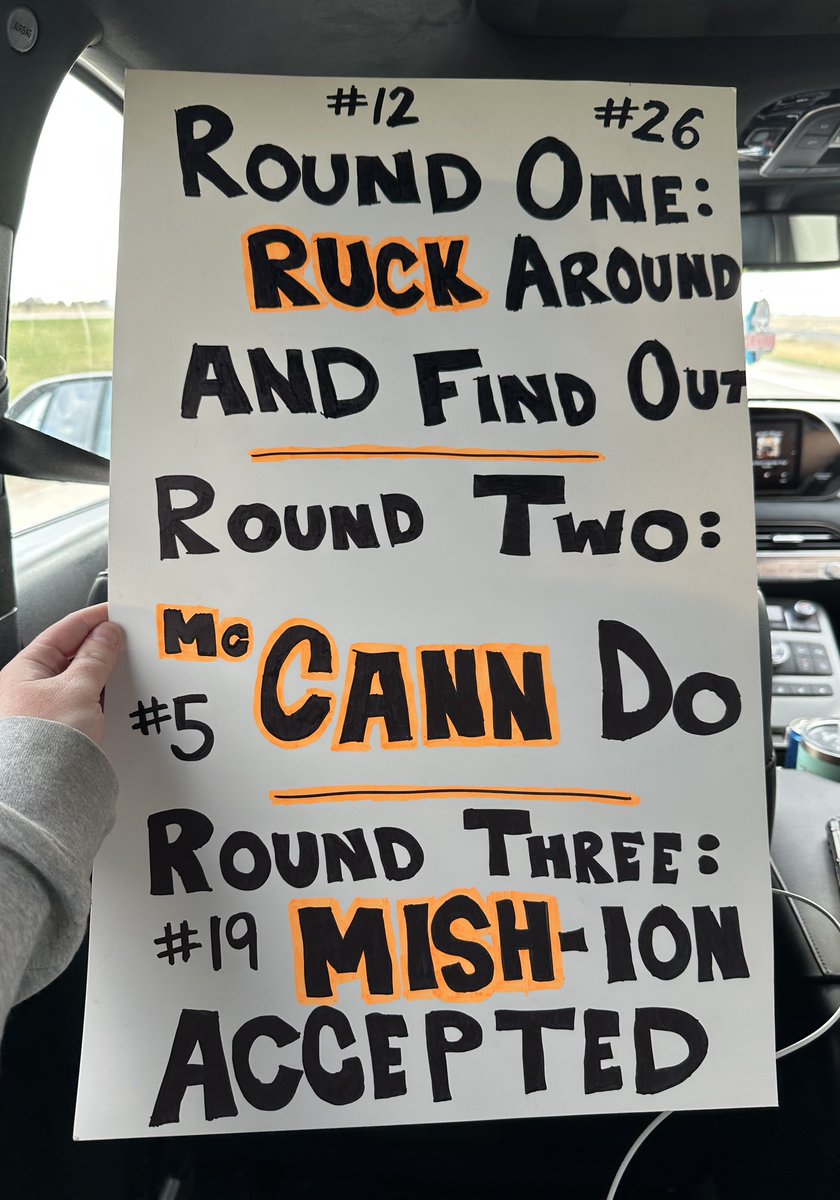 AIRBAG
#12 #26
ROUND ONE:
RUCK AROUND
AND FIND OUT
ROUND TWO:
McCANN DO
#5
ROUND THREE:
#19 MISH-ION
ACCEPTED